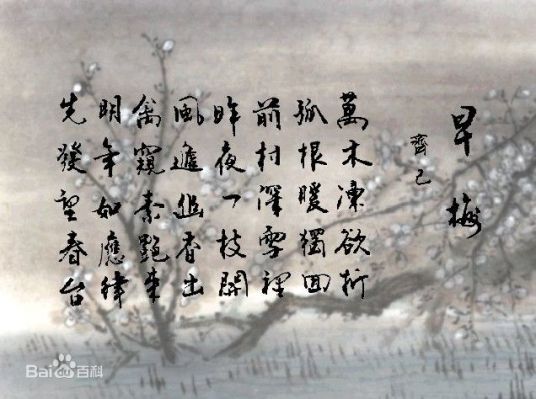 早梅
齊己
萬木凍欲折
孤根暖獨回
前村深雪裡
昨夜一枝開
風遞幽香出
禽窺素艷來
明年如應律
先發望春台
Bai百科